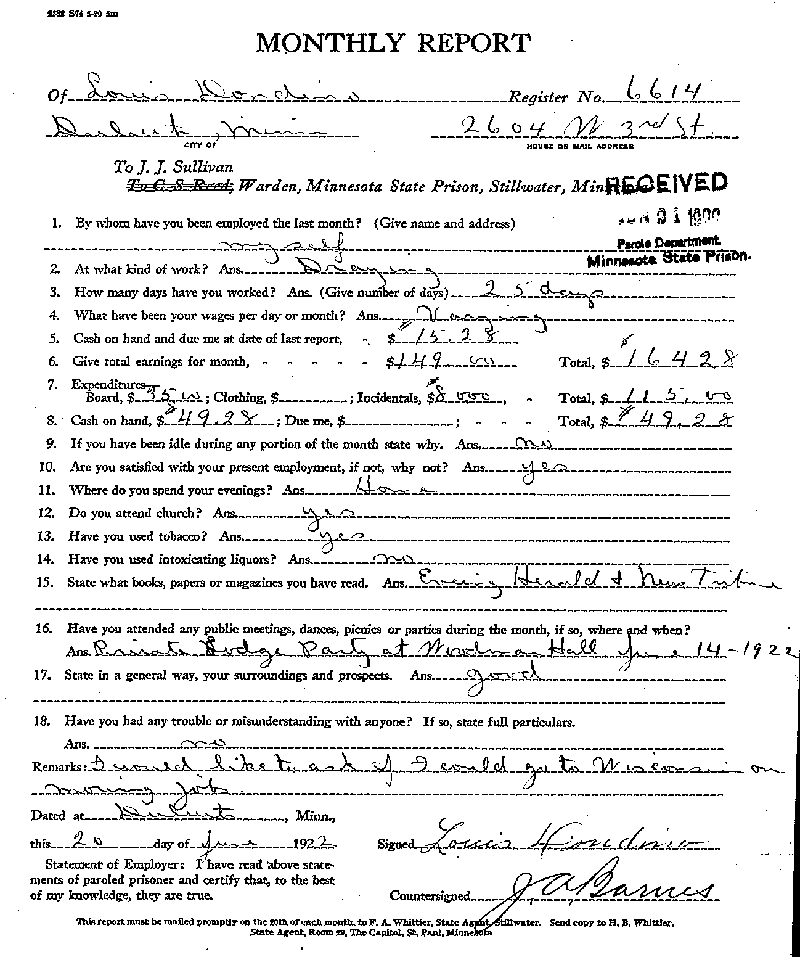 MONTHLY REPORT
Of Louis Dondino Register No. 6614
Duluth, Minn 2604 W 3rd St.
CITY OF HOUSE OR MAIL ADDRESS
To J. J. Sullivan
To C. S. Reed, Warden, Minnesota State Prison, Stillwater, Minn
RECEIVED
Parole Department
Minnesota State Prison.
1. By whom have you been employed the last month? (Give name and address)
myself
2. At what kind of work? Ans. Draying
3. How many days have you worked? Ans. (Give number of days) 25 days
4. What have been your wages per day or month? Ans. Varying
5. Cash on hand and due me at date of last report, - $ 15.28
6. Give total earnings for month, - - - - - $149 00 Total, $ 164 28
7. Expenditures—
Board, $35 00; Clothing, $ ; Incidentals, $80 00, - Total, $ 115.00
8. Cash on hand, $ 49.28; Due me, $ ; - - - Total, $ 49.28
9. If you have been idle during any portion of the month state why. Ans. no
10. Are you satisfied with your present employment, if not, why not? Ans. yes
11. Where do you spend your evenings? Ans. Home
12. Do you attend church? Ans. yes
13. Have you used tobacco? Ans. yes
14. Have you used intoxicating liquors? Ans. no
15. State what books, papers or magazines you have read. Ans. Evening Herald & News Tribune
16. Have you attended any public meetings, dances, picnics or parties during the month, if so, where and when?
Ans. Private Lodge Party at Woodman Hall June 14-1922
17. State in a general way, your surroundings and prospects. Ans. good
18. Have you had any trouble or misunderstanding with anyone? If so, state full particulars.
Ans. no
Remarks: I would like to ask if I could go to Wisconsin on
moving job
Dated at Duluth, Minn.,
this 20 day of June 1922. Signed Louis Dondino
Statement of Employer: I have read above state-
ments of paroled prisoner and certify that, to the best
of my knowledge, they are true. Countersigned J A Barnes
This report must be mailed promptly on the 20th of each month, to F. A. Whittier, State Agent, Stillwater. Send copy to H. B. Whittier,
State Agent, Room 22, The Capitol, St. Paul, Minnesota